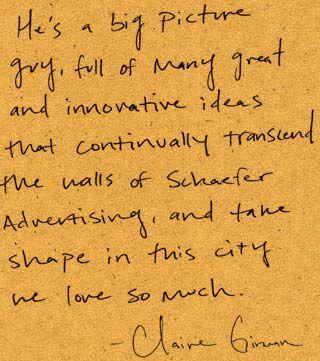 He's a big picture
guy, full of many great
and innovative ideas
that continually transcend
the walls of Schaefer
Advertising, and take
shape in this city
we love so much.
- Claire